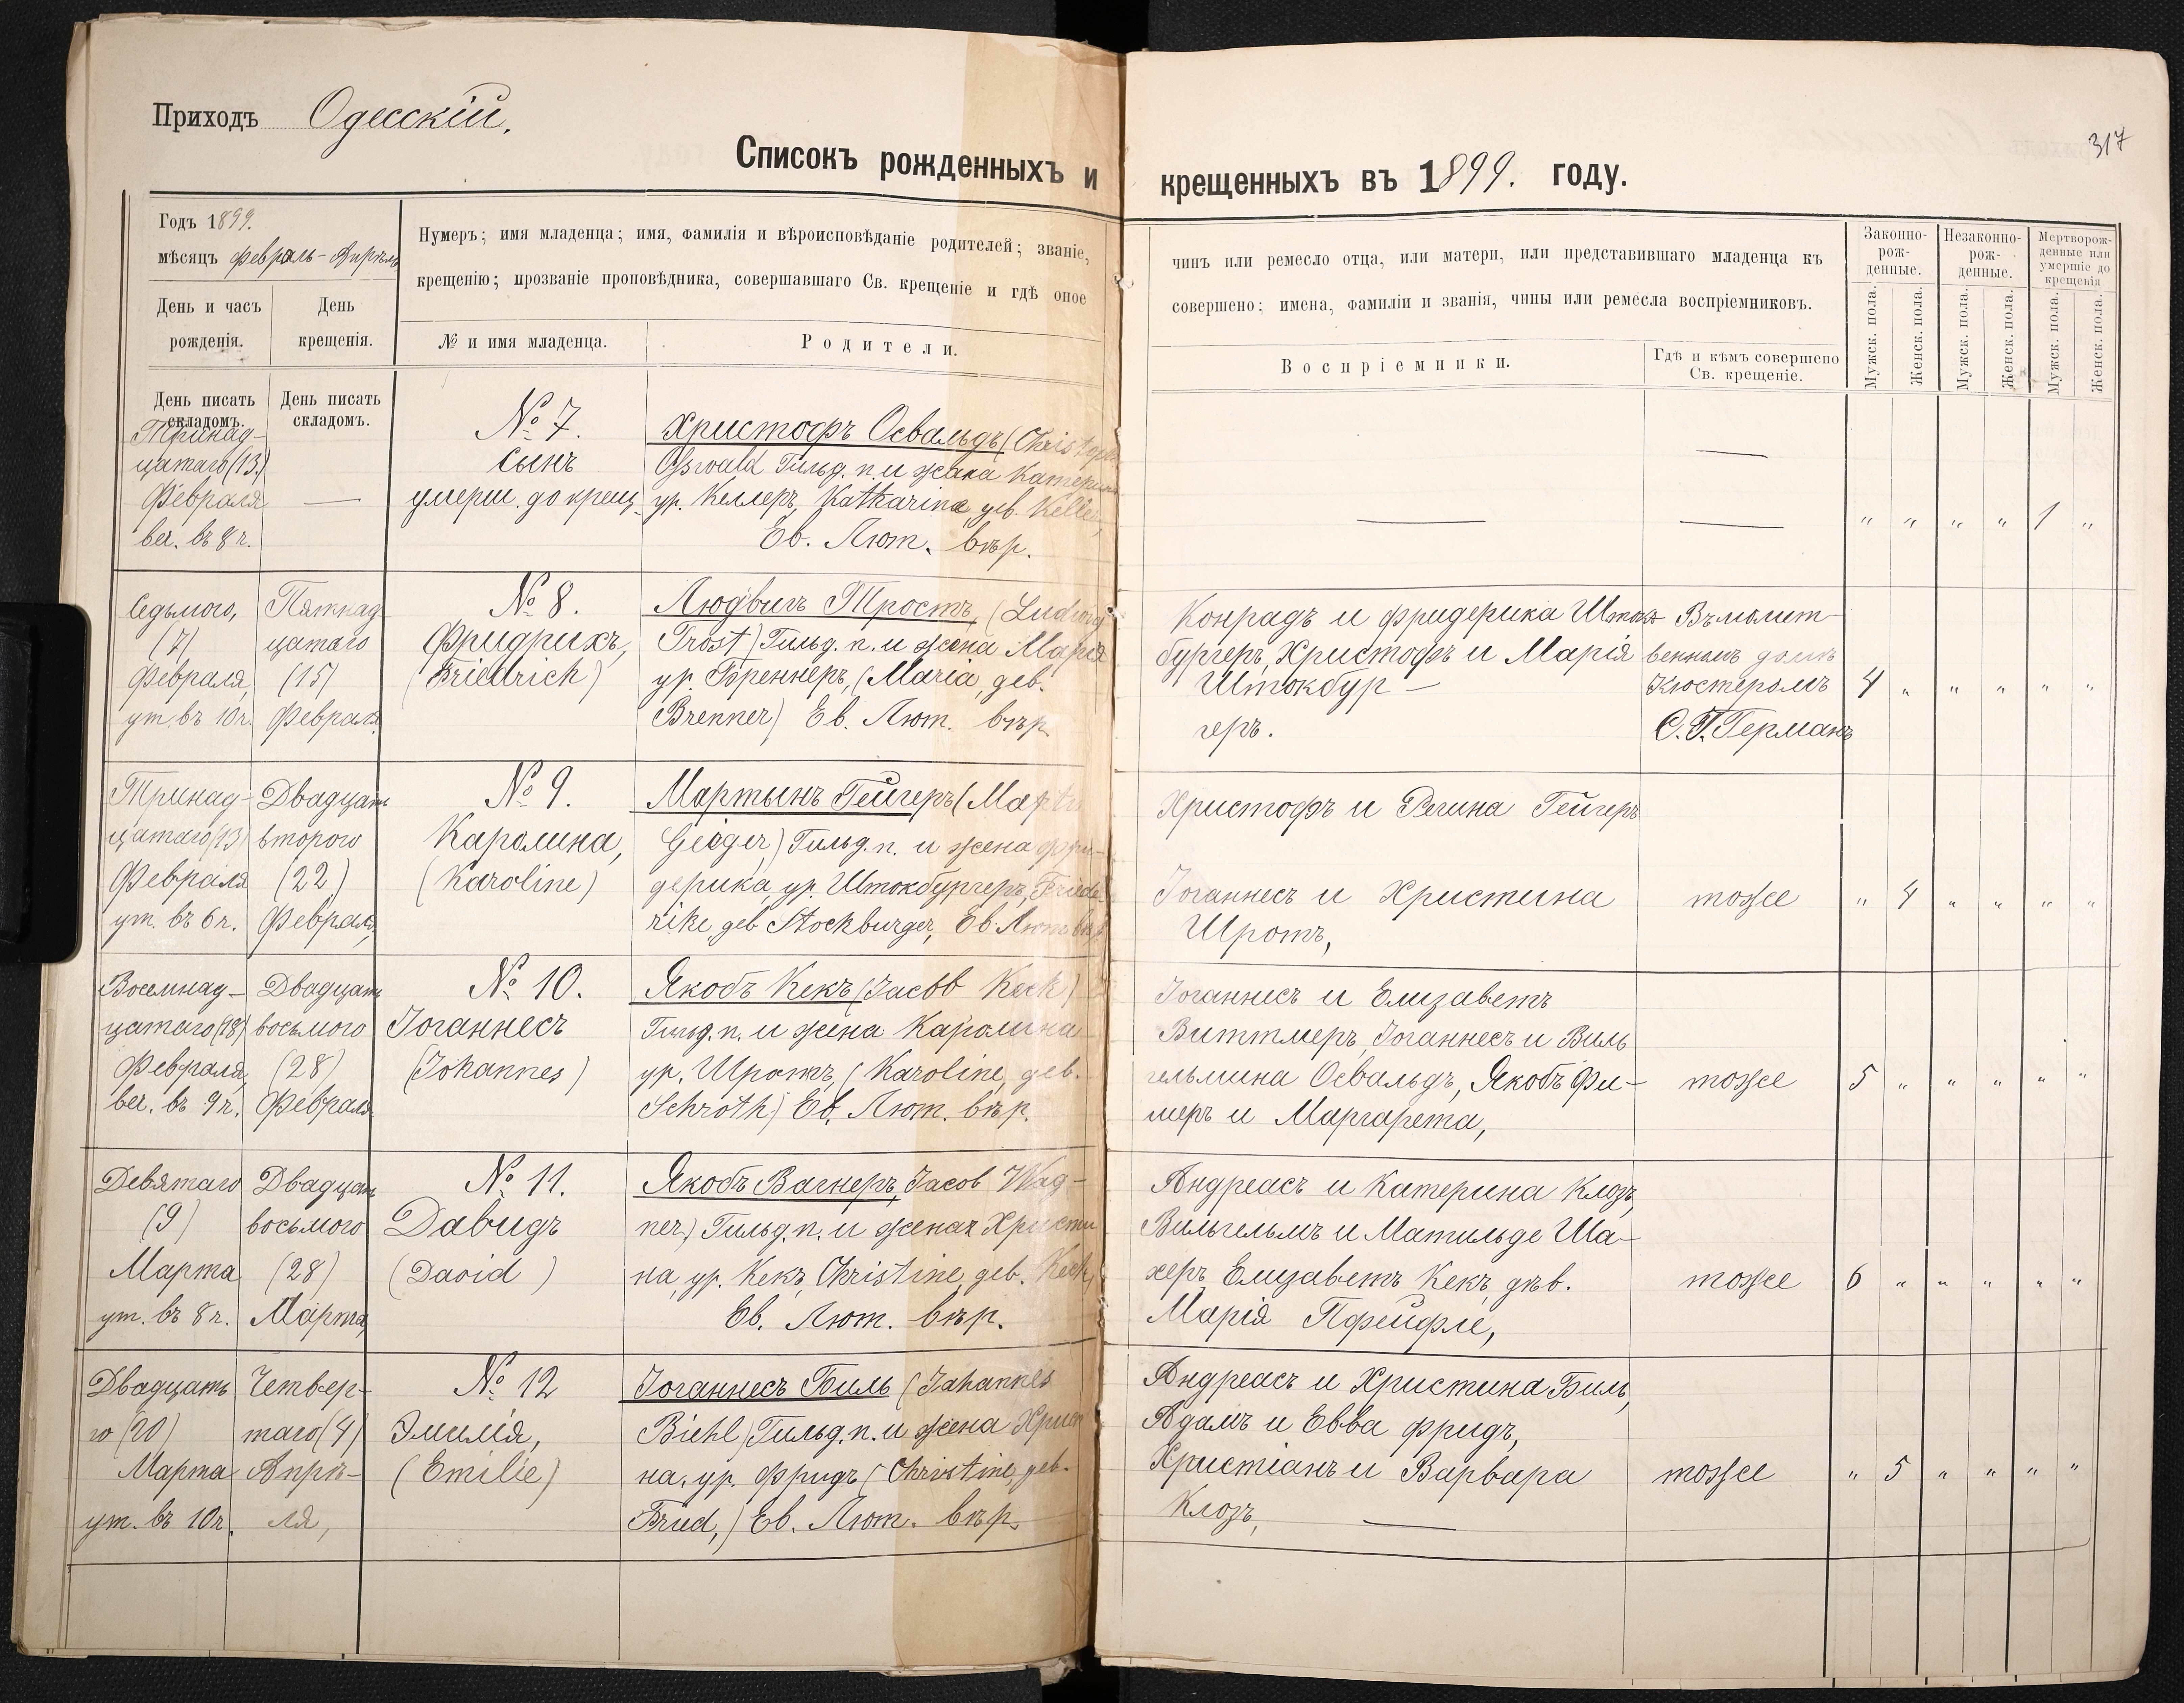 Приходъ Одесскій.
317
Списокъ рожденныхъ и крещенныхъ въ 1899. году.
Годъ 1899.
мѣсяцъ Февраль-Апрѣль
День и часъ рожденія.
День крещенія.
Нумеръ; имя младенца; имя, фамилія и вѣроисповѣданіе родителей; званіе,
крещенію; прозваніе проповѣдника, совершавшаго Св. крещеніе и гдѣ оное
№ и имя младенца.
Родители.
чинъ или ремесло отца, или матери, или представившаго младенца къ
совершено; имена, фамиліи и званія, чины или ремесла воспріемниковъ.
Воспріемники.
Гдѣ и кѣмъ совершено
Св. крещеніе.
Законно-
рож-
денные.
Незаконно-
рож-
денные.
Мертворож-
денные или
умершіе до
крещенія
Мужск. пола.
Женск. пола.
Мужск. пола.
Женск. пола.
Мужск. пола.
Женск. пола.
День писать
складомъ.
День писать
складомъ.
Тринад-
цатаго (13)
Февраля
веч. въ 8 ч.
—
№ 7.
сынъ
умерш. до крещ.
Христофъ Освальдъ (Christoph
Osswald Гильд. п. и жена Катерина
ур. Келлеръ, Katharina, дѣв. Keller,
Ев. Лют. вѣр.
—
— —
" " " " 1 "
Седьмого,
(7)
Февраля,
ут. въ 10 ч.
Пятнад-
цатаго
(15)
Февраля.
№ 8.
Фридрихъ,
(Friedrich)
Людвигъ Тростъ, (Ludwig
Trost) Гильд. п. и жена Марія
ур. Бреннеръ, (Maria, дев.
Brenner) Ев. Лют. вѣр.
Конрадъ и Фридерика Шток-
бургеръ, Христофъ и Марія
Штокбур-
геръ.
Въ молит-
венномъ домѣ
Кюстеромъ
С. Г. Германъ
4 " " " " "
Тринад-
цатаго (13)
Февраля
ут. въ 6 ч.
Двадцать
второго
(22)
Февраля,
№ 9.
Каролина,
(Karoline)
Мартынъ Гейгеръ (Martin
Geiger,) Гильд. п. и жена Фри-
дерика, ур. Штокбургеръ, Friede-
rike, дев Stockburger, Ев. Лют. вѣр.
Христофъ и Регина Гейгеръ
Іоганнесъ и Христина
Шротъ,
тоже
" 4 " " " "
Восемнад-
цатаго (18)
Февраля,
веч. въ 9 ч.
Двадцать
восьмого
(28)
Февраля
№ 10.
Іоганнесъ
(Johannes)
Якобъ Кекъ (Jacob Keck)
Гильд. п. и жена Каролина
ур. Шротъ, (Karoline, дев.
Schroth) Ев. Лют. вѣр.
Іоганнесъ и Елизаветъ
Виттмеръ, Іоганнесъ и Виль
гельмина Освальдъ, Якобъ Фи-
шеръ и Маргарета,
тоже
5 " " " " "
Девятаго
(9)
Марта
ут. въ 8 ч.
Двадцать
восьмого
(28)
Марта,
№ 11.
Давидъ
(David)
Якобъ Вагнеръ, Jacob Wag-
ner) Гильд. п. и жена Христи
на, ур. Кекъ, Christine, дев. Keck,
Ев. Лют. вѣр.
Андреасъ и Катерина Клозъ,
Вильгельмъ и Матильде Ша-
херъ, Елизаветъ Кекъ, дѣв.
Марія Пфейфле,
тоже
6 " " " " "
Двадцать
го (20)
Марта
ут. въ 10 ч.
Четвер-
таго (4)
Апрѣ-
ля,
№ 12
Эмилія,
(Emilie)
Іоганнесъ Биль (Johannes
Biehl) Гильд. п. и жена Христи
на, ур. Фридъ (Christine, дев.
Fried,) Ев. Лют. вѣр.
Андреасъ и Христина Биль,
Адамъ и Евва Фридъ,
Христіанъ и Варвара
Клозъ, —
тоже
" 5 " " " "